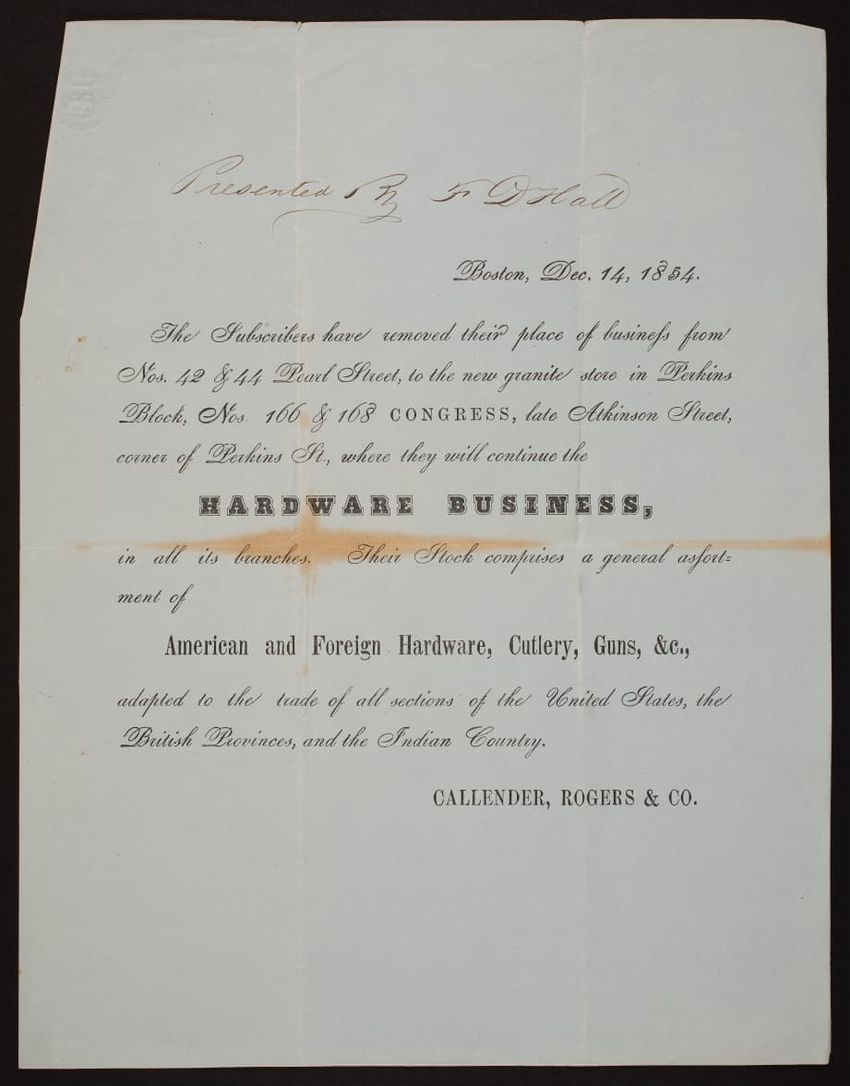 Presented By F D Hall
Boston, Dec. 14, 1854.
The Subscribers have removed their place of busineſs from
Nos. 42 & 44 Pearl Street, to the new granite store in Perkins
Block, Nos. 166 & 168 CONGRESS, late Atkinson Street,
corner of Perkins St., where they will continue the
HARDWARE BUSINESS,
in all its branches. Their Stock comprises a general aſsort=
ment of
American and Foreign Hardware, Cutlery, Guns, &c.,
adapted to the trade of all sections of the United States, the
British Provinces, and the Indian Country.
CALLENDER, ROGERS & CO.